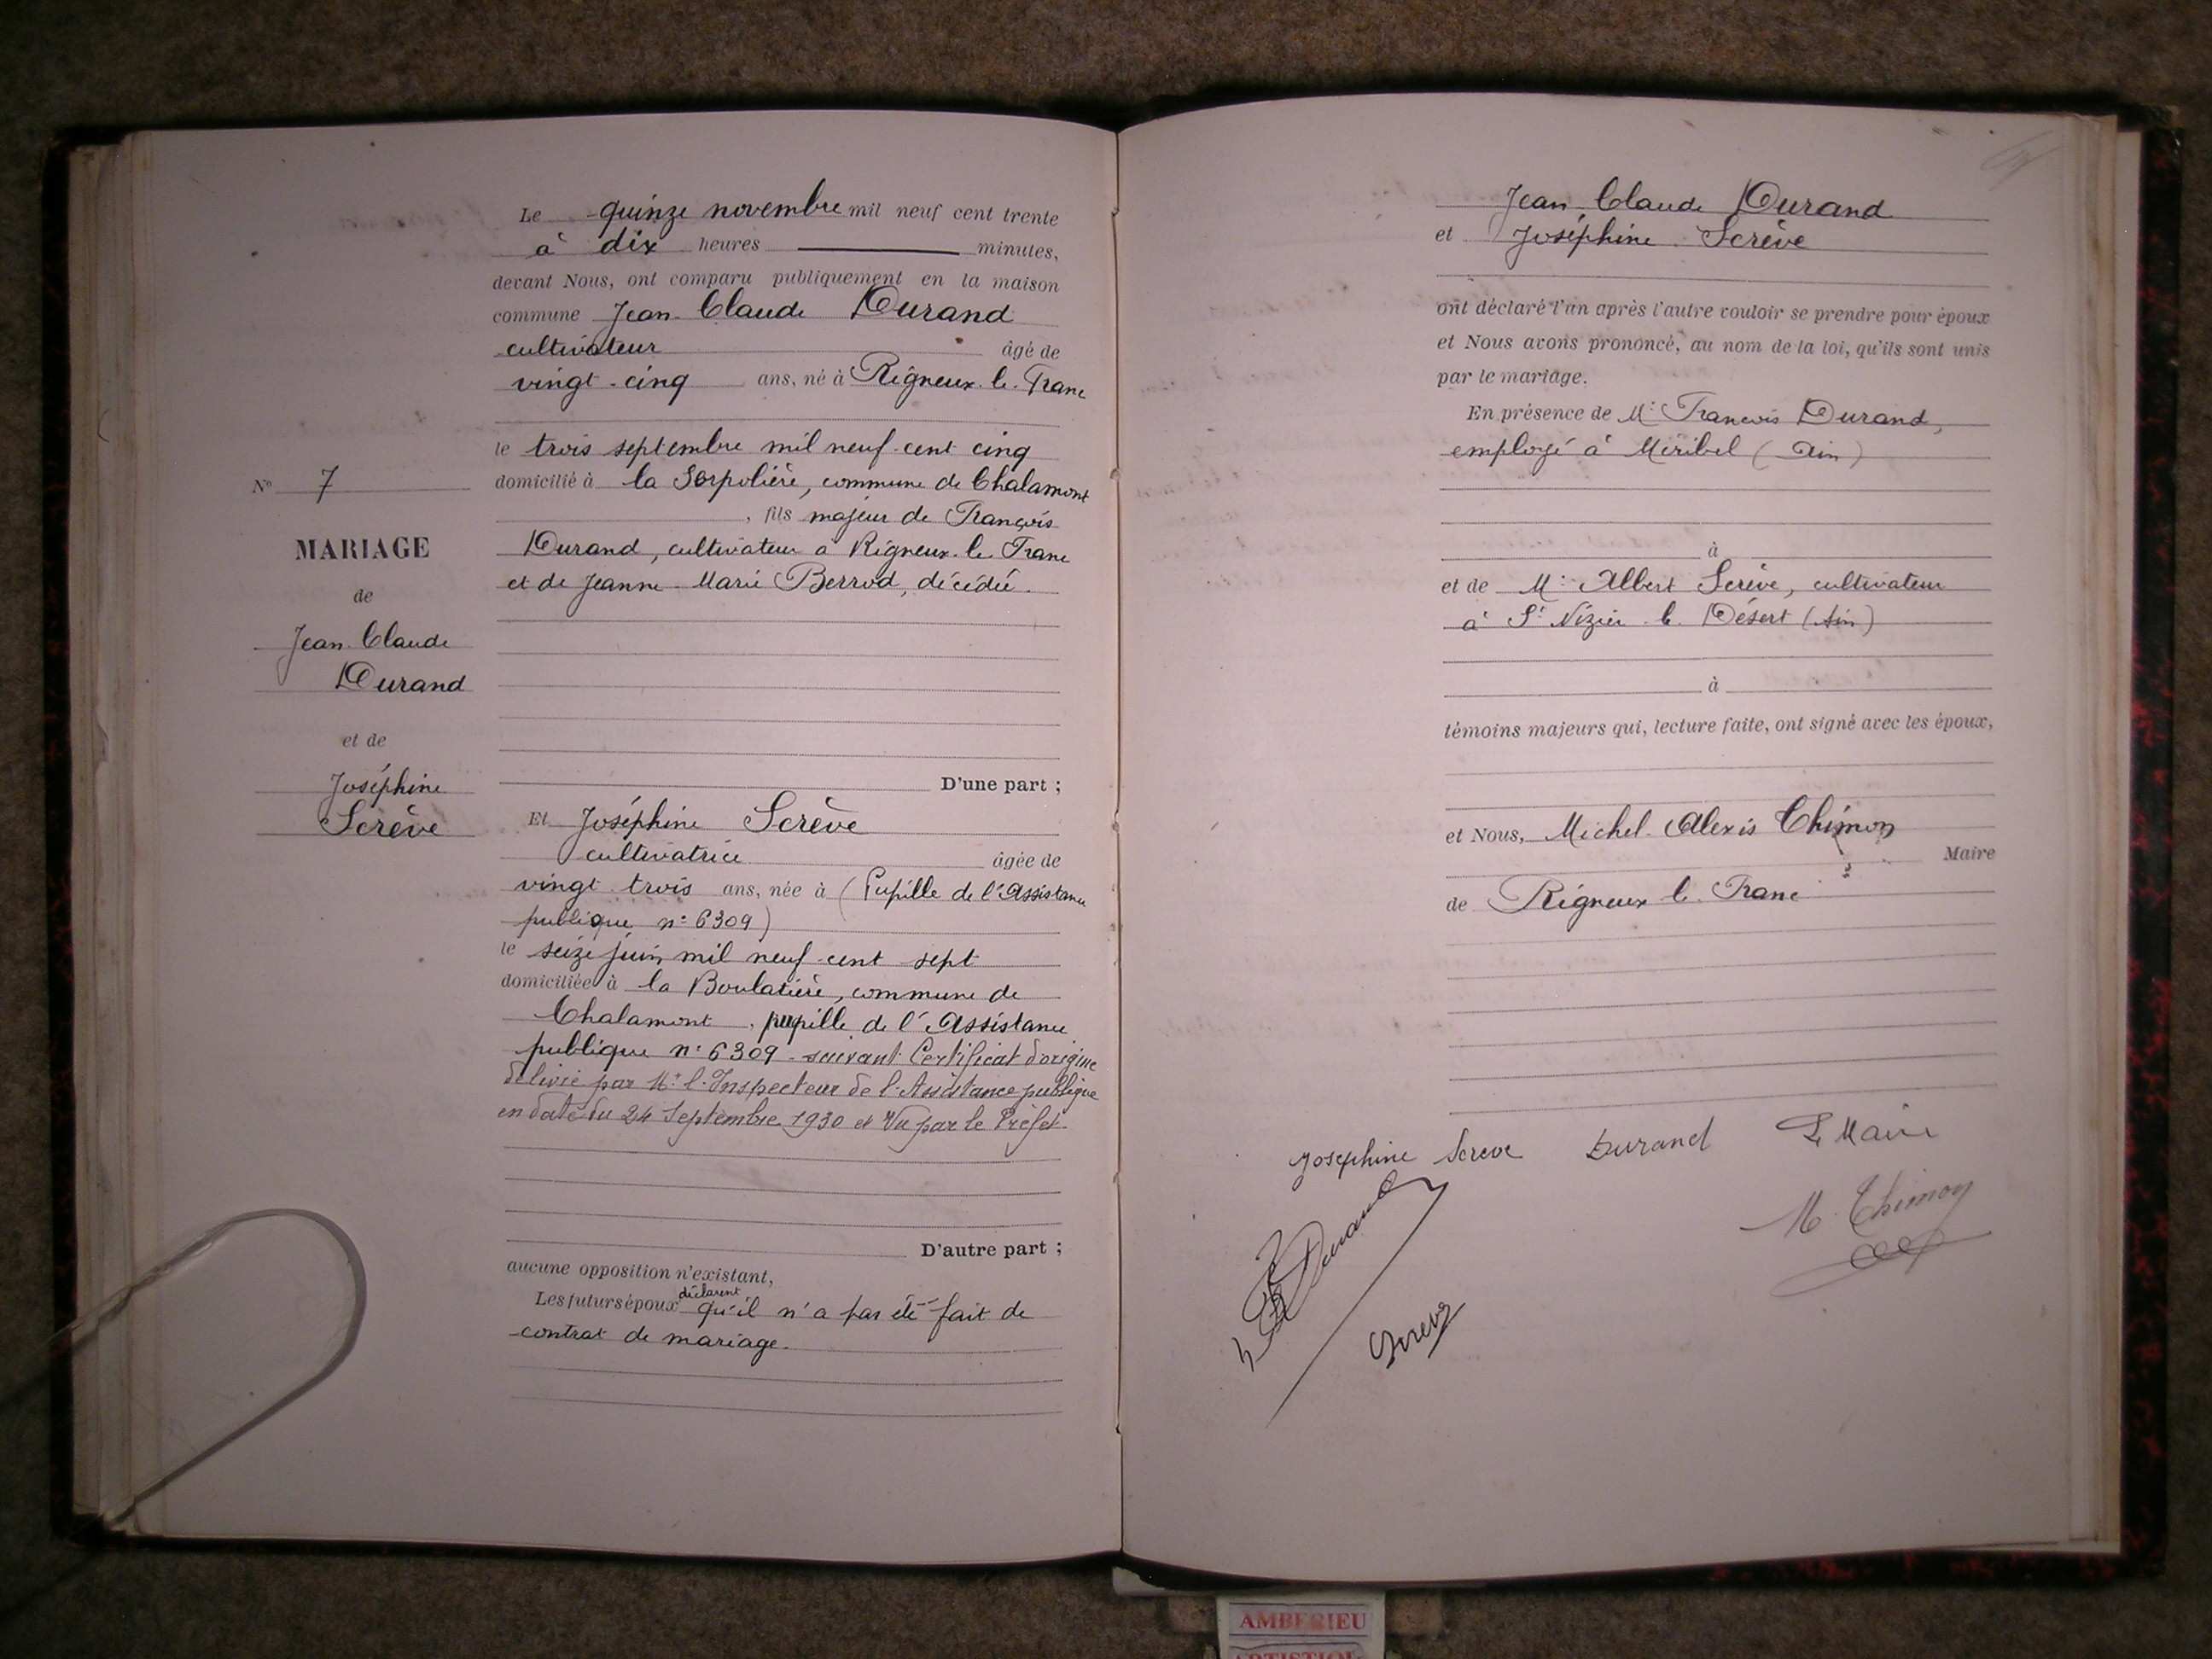 Le quinze novembre mil neuf cent trente
à dix heures minutes,
devant Nous, ont comparu publiquement en la maison
commune Jean-Claude Durand
cultivateur âgé de
vingt-cinq ans, né à Rigneux-le-Franc
le trois septembre mil neuf-cent cinq
domicilié à la Serpolière, commune de Chalamont
, fils majeur de François
Durand, cultivateur à Rigneux-le-Franc
et de Jeanne-Marie Berrod, décédée.
N° 7
MARIAGE
de
Jean-Claude
Durand
et de
Joséphine
Screve
D'une part ;
Et Joséphine Scrève
cultivatrice âgée de
vingt-trois ans, née à (Pupille de l'Assistance
publique n° 6309)
le seize juin mil neuf-cent sept
domiciliée à la Boulatière, commune de
Chalamont, pupille de l'Assistance
publique n° 6309 - suivant Certificat d'origine
délivré par Mr l'Inspecteur de l'Assistance publique
en date du 24 Septembre 1930 et Vu par le Préfet.
D'autre part ;
aucune opposition n'existant,
Les futurs époux déclarent qu'il n'a pas été fait de
contrat de mariage.
Jean-Claude Durand
et Joséphine Scrève
ont déclaré l'un après l'autre vouloir se prendre pour époux
et Nous avons prononcé, au nom de la loi, qu'ils sont unis
par le mariage.
En présence de Mr François Durand,
employé à Miribel (Ain)
à
et de Mr Albert Screve, cultivateur
à St Nizier-le-Désert (Ain)
à
témoins majeurs qui, lecture faite, ont signé avec les époux,
et Nous, Michel-Alexis Thimon
Maire
de Rigneux-le-Franc
Josephine Screve Durand Le Maire
M. Thimon
Durand
Screve
AMBERIEU